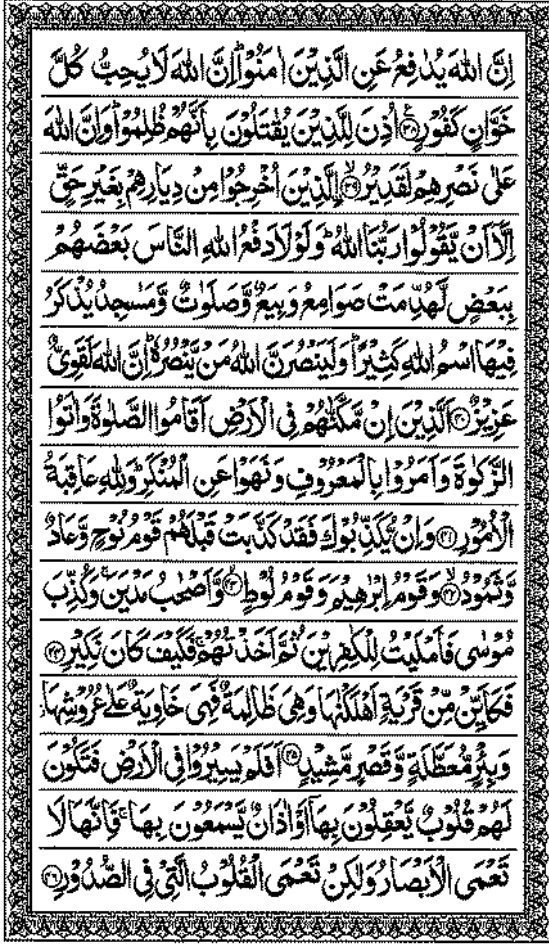 اِنَّ اللّٰهَ يُدٰفِعُ عَنِ الَّذِيْنَ اٰمَنُوْاؕ اِنَّ اللّٰهَ لَا يُحِبُّ كُلَّ
خَوَّانٍ كَفُوْرٍ۝۳۸ اُذِنَ لِلَّذِيْنَ يُقٰتَلُوْنَ بِاَنَّهُمْ ظُلِمُوْاؕ وَاِنَّ اللّٰهَ
عَلٰى نَصْرِهِمْ لَقَدِيْرُۙ۝۳۹ اِلَّذِيْنَ اُخْرِجُوْا مِنْ دِيَارِهِمْ بِغَيْرِ حَقٍّ
اِلَّاۤ اَنْ يَّقُوْلُوْا رَبُّنَا اللّٰهُؕ وَلَوْلَا دَفْعُ اللّٰهِ النَّاسَ بَعْضَهُمْ
بِبَعْضٍ لَّهُدِّمَتْ صَوَامِعُ وَبِيَعٌ وَّصَلَوٰتٌ وَّمَسٰجِدُ يُذْكَرُ
فِيْهَا اسْمُ اللّٰهِ كَثِيْرًاؕ وَلَيَنْصُرَنَّ اللّٰهُ مَنْ يَّنْصُرُهٗؕ اِنَّ اللّٰهَ لَقَوِيٌّ
عَزِيْزٌ۝۴۰ اَلَّذِيْنَ اِنْ مَّكَّنّٰهُمْ فِي الْاَرْضِ اَقَامُوا الصَّلٰوةَ وَاٰتَوُا
الزَّكٰوةَ وَاَمَرُوْا بِالْمَعْرُوْفِ وَنَهَوْا عَنِ الْمُنْكَرِؕ وَلِلّٰهِ عَاقِبَةُ
الْاُمُوْرِ۝۴۱ وَاِنْ يُّكَذِّبُوْكَ فَقَدْ كَذَّبَتْ قَبْلَهُمْ قَوْمُ نُوْحٍ وَّعَادٌ
وَّثَمُوْدُۙ۝۴۲ وَقَوْمُ اِبْرٰهِيْمَ وَقَوْمُ لُوْطٍۙ۝۴۳ وَّاَصْحٰبُ مَدْيَنَۚ وَكُذِّبَ
مُوْسٰى فَاَمْلَيْتُ لِلْكٰفِرِيْنَ ثُمَّ اَخَذْتُهُمْۚ فَكَيْفَ كَانَ نَكِيْرِ۝۴۴
فَكَاَيِّنْ مِّنْ قَرْيَةٍ اَهْلَكْنٰهَا وَهِيَ ظَالِمَةٌ فَهِيَ خَاوِيَةٌ عَلٰى عُرُوْشِهَا
وَبِئْرٍ مُّعَطَّلَةٍ وَّقَصْرٍ مَّشِيْدٍ۝۴۵ اَفَلَمْ يَسِيْرُوْا فِي الْاَرْضِ فَتَكُوْنَ
لَهُمْ قُلُوْبٌ يَّعْقِلُوْنَ بِهَاۤ اَوْ اٰذَانٌ يَّسْمَعُوْنَ بِهَاۚ فَاِنَّهَا لَا
تَعْمَى الْاَبْصَارُ وَلٰكِنْ تَعْمَى الْقُلُوْبُ الَّتِيْ فِي الصُّدُوْرِ۝۴۶